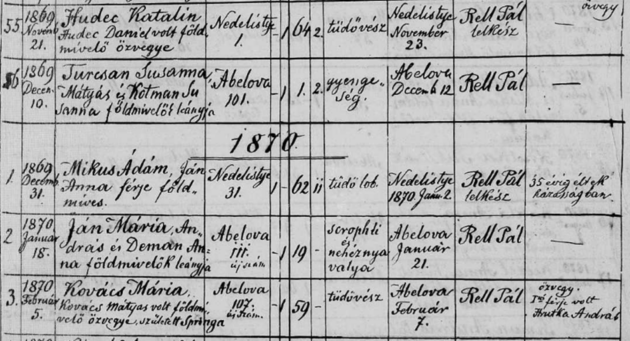 özvegy
55 1869 Novemb 21. Hudec Katalin Hudec Daniel volt föld mívelő özvegye Nedelistye 1. 1 64 2. tüdővész Nedelistye November 23. Rell Pál lelkész
56 1869 Decem. 10. Turcsan Susanna Mátyás és Kotman Su sanna földmivelők leányja Abelova 101. – 1 1. 2. gyenge- ség. Abelova Decemb 12 Rell Pál —
1870.
1. 1869 Decemb 31. Mikus Ádám, Ján Anna férje föld- míves. Nedelistye 31. 1 – 62 11 tüdő lob. Nedelistye 1870 Janu. 2. Rell Pál lelkész 35 évig éltek házasságban.
2 1870 Január 18. Ján Mária, An- drás és Deman An- na földmivelők leányja Abelova 111. új szám. – 1 19 – scrophli és nehéznya valya Abelova Január 21. Rell Pál —
3. 1870 Február 5. Kovács Mária, Kovács Mátyás volt földmí- velő özvegye, született Springa Abelova 107. új szám. – 1 59 – tüdővész Abelova Február 7. Rell Pál özvegy. I férje volt Hrutka András